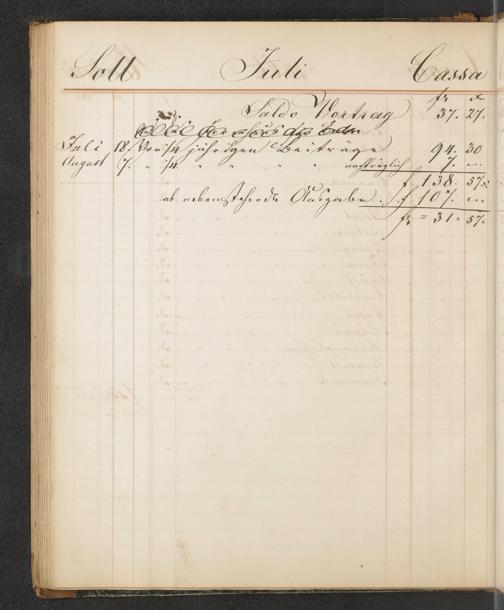 Soll Juli Cassa
fr. c.
Saldo Vortrag 37. 27.
Juli 18. Von 1/4 jährigen Beiträge 94. 30
August 7. " 1/4 " " " " nachträglich 7. —
f. 138. 57.
ab nebenstehende Ausgabe . f. 107. —
fr = 31. 57.